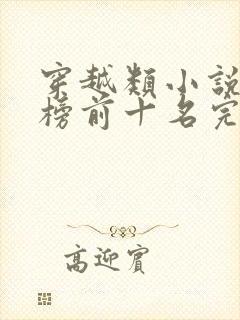 穿越類小說
榜前十名完
高迎賓